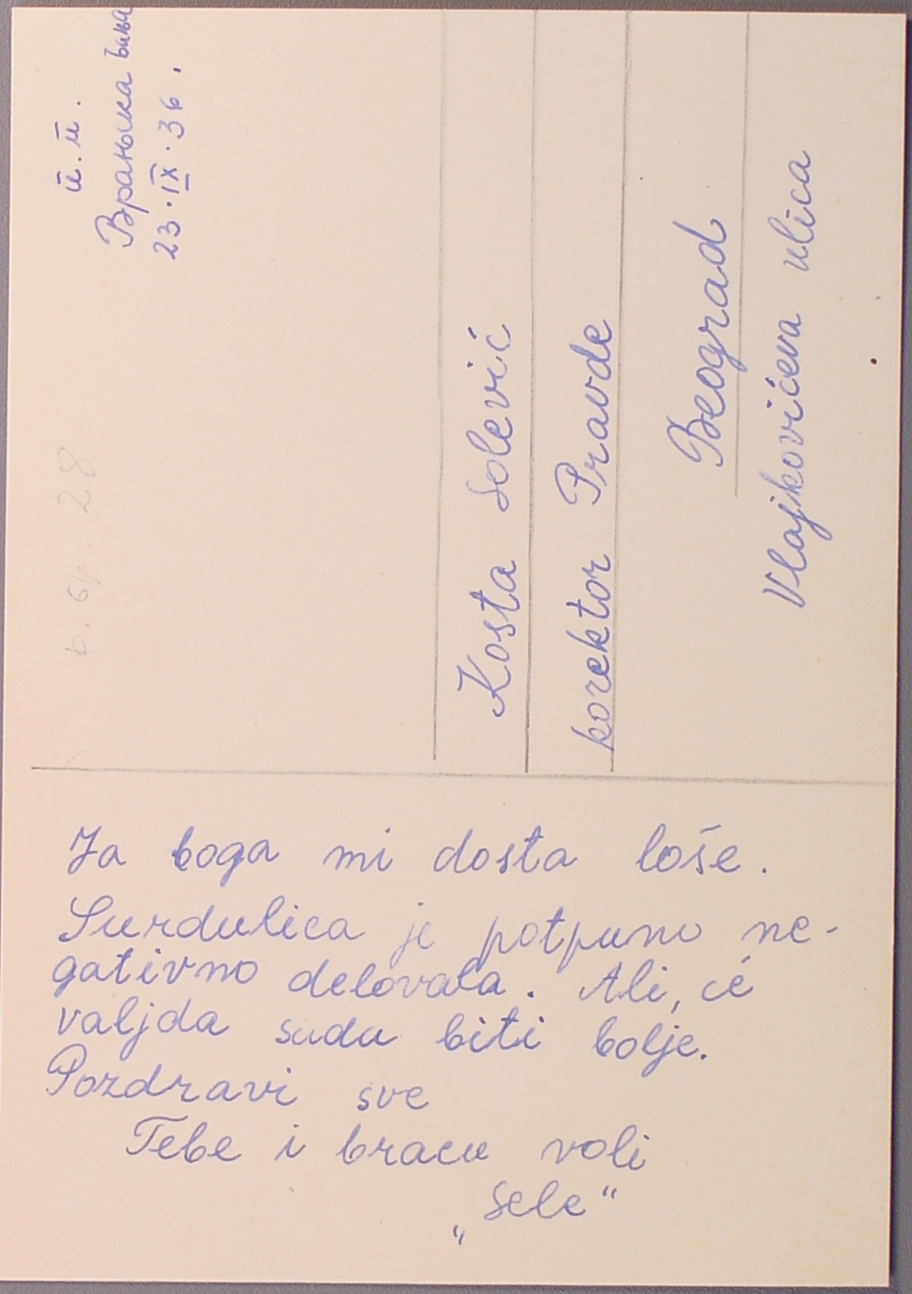 п.п.
Врањска бања
23.IX.36.
28
Kosta Solević
korektor Pravde
Beograd
Vlajkovićeva ulica
Ja boga mi dosta loše.
Surdulica je potpuno ne-
gativno delovala. Ali, će
valjda sada biti bolje.
Pozdravi sve
Tebe i bracu voli
„Sele“